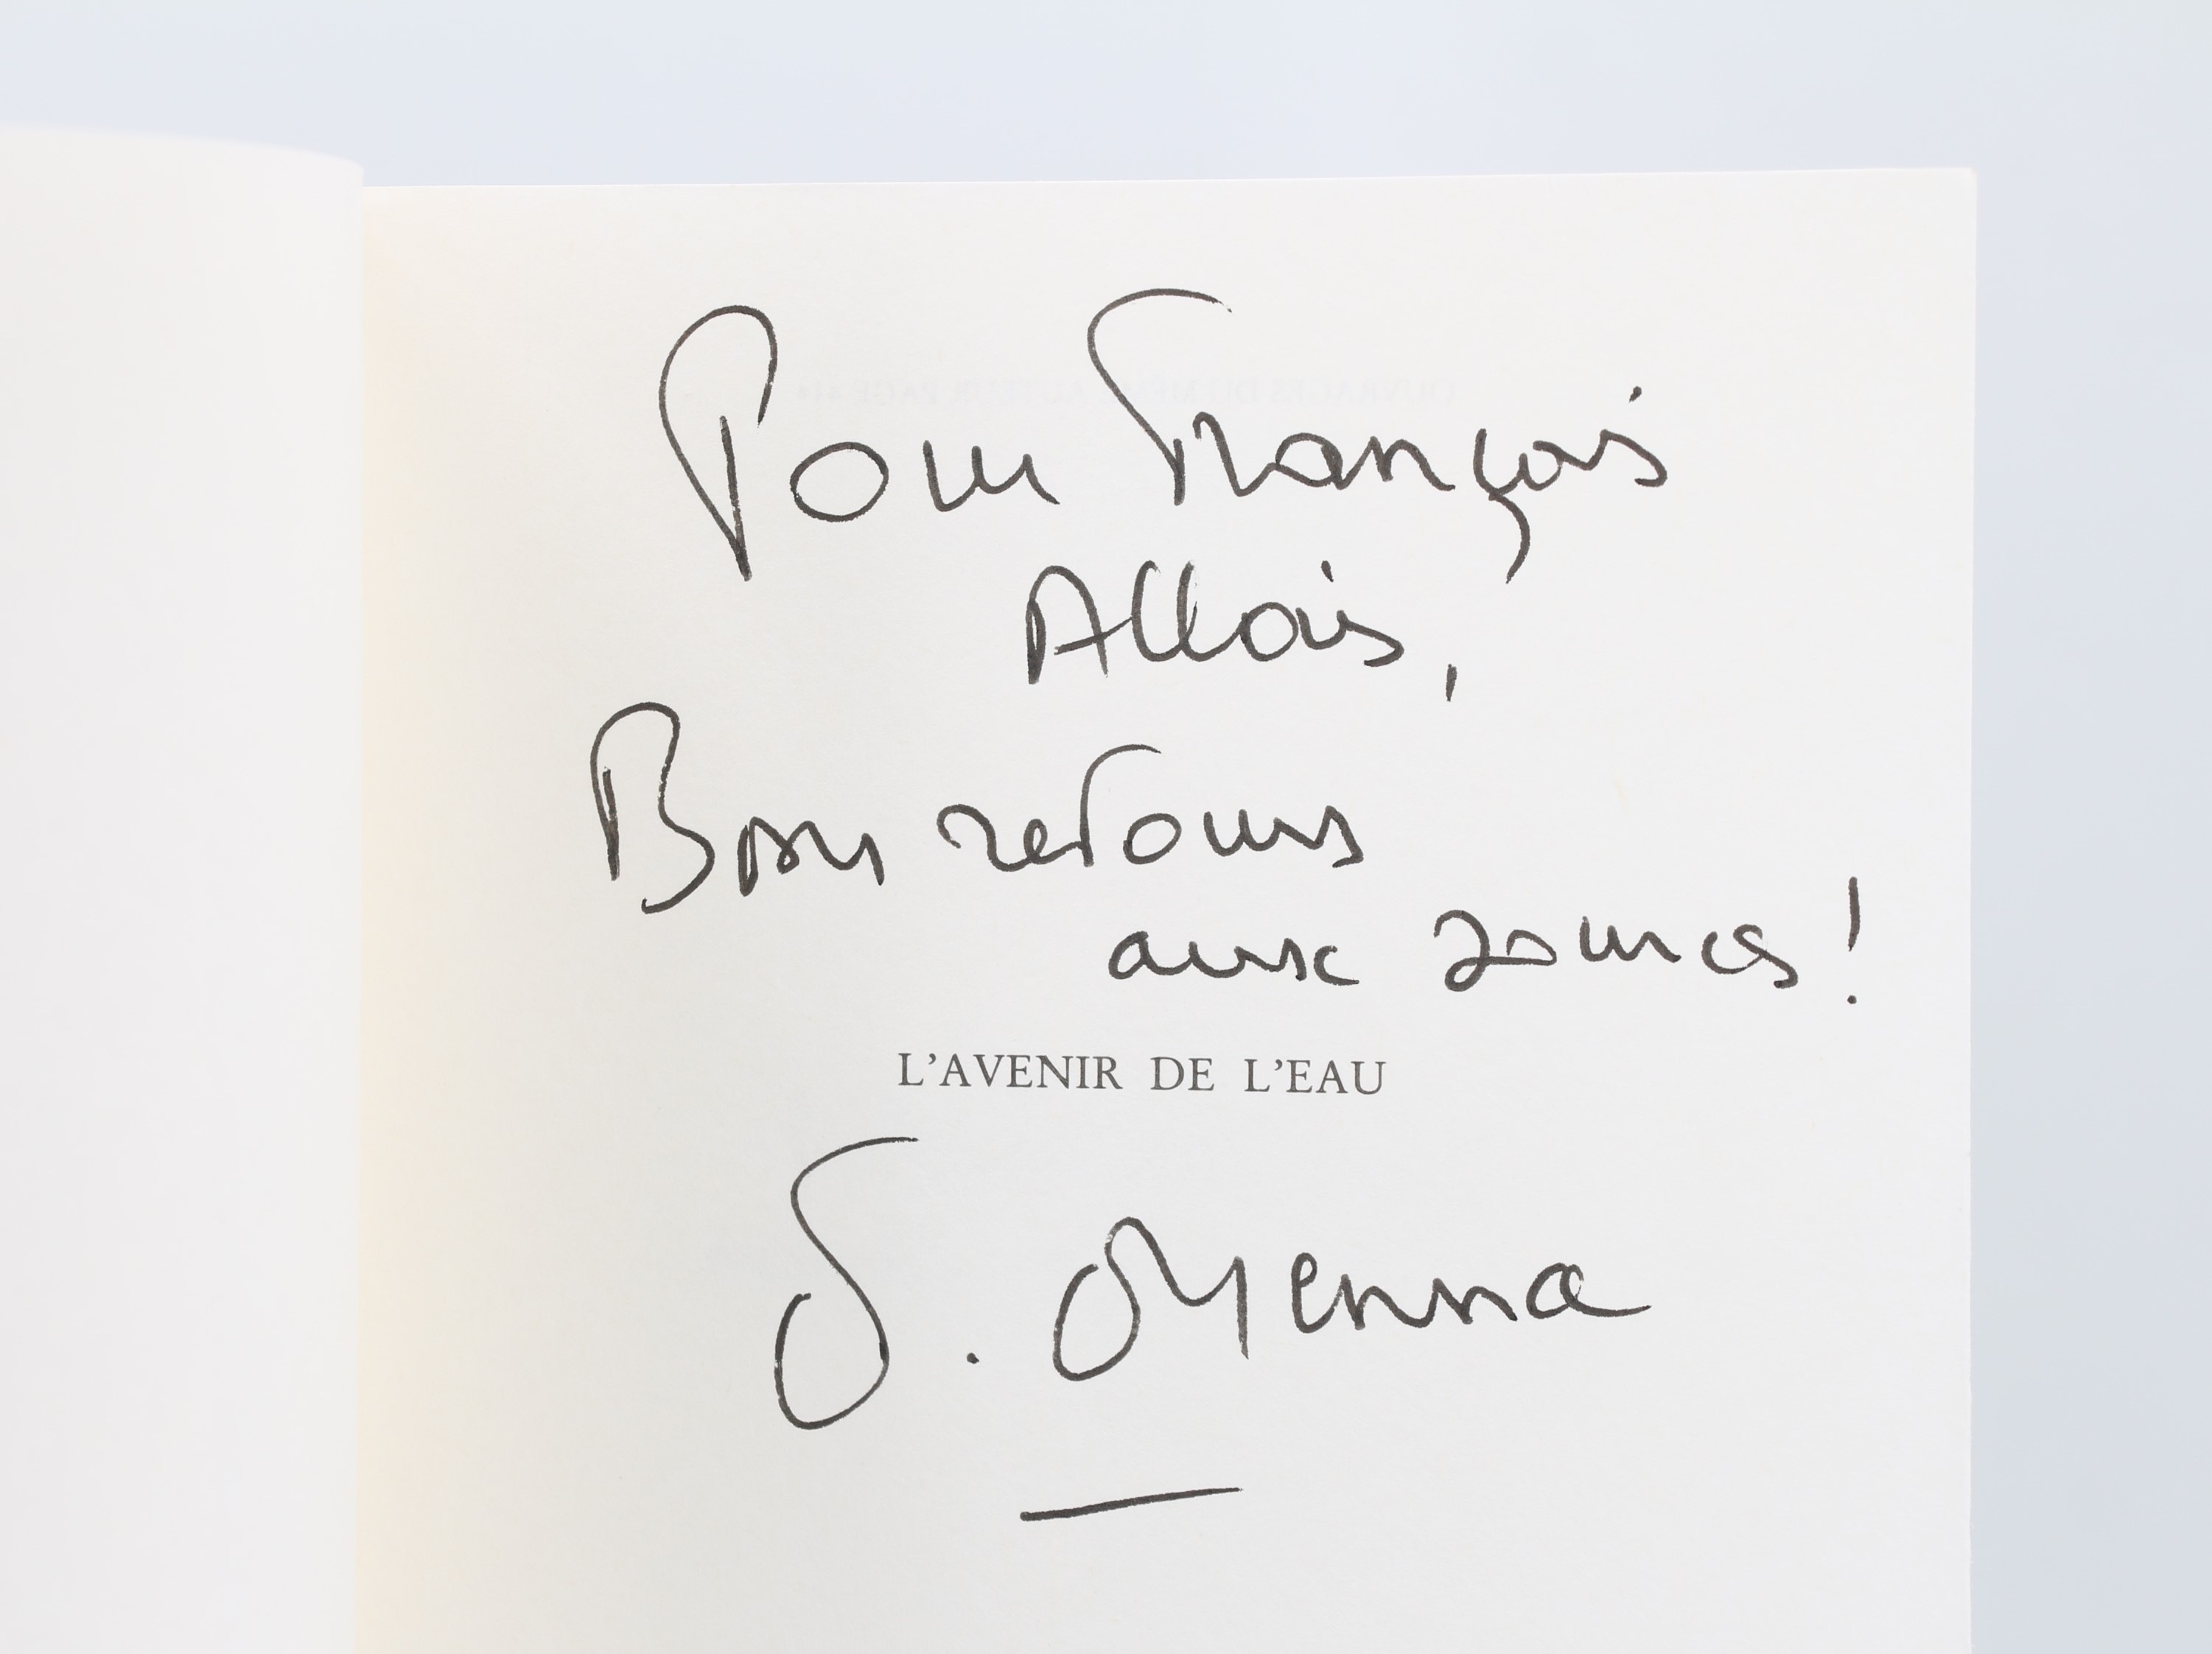 Pour François
Allois,
Bons retours
aux sources !
L'AVENIR DE L'EAU